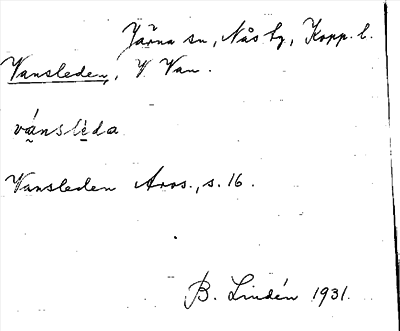 Järna sn, Nås hg, Kopp. l.
Vansleden, V Van.
vánslèda
Vansleden Aros., s. 16.
B. Lindén 1931.